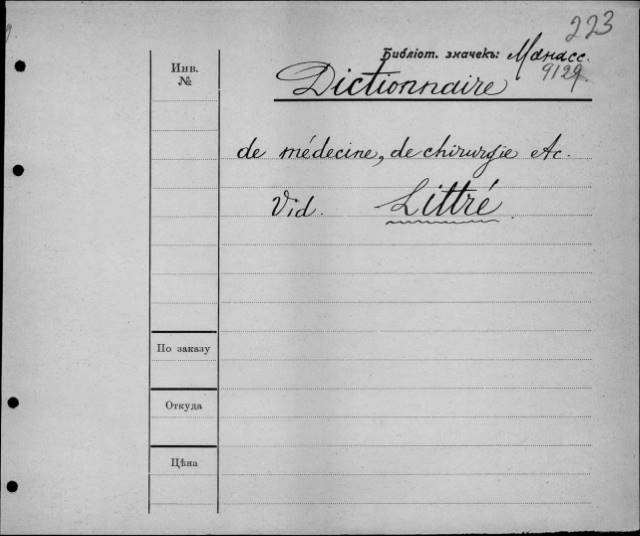 223
Библіот. значекъ: Манасс.
9129
Инв.
№
Dictionnaire
de médecine, de chirurgie &c.
Vid. Littré
По заказу
Откуда
Цѣна